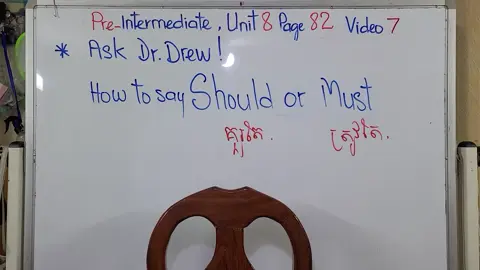 Pre-Intermediate, Unit 8 Page 82 Video 7
* Ask Dr. Drew!
How to say Should or Must
គួរតែ. ត្រូវតែ.